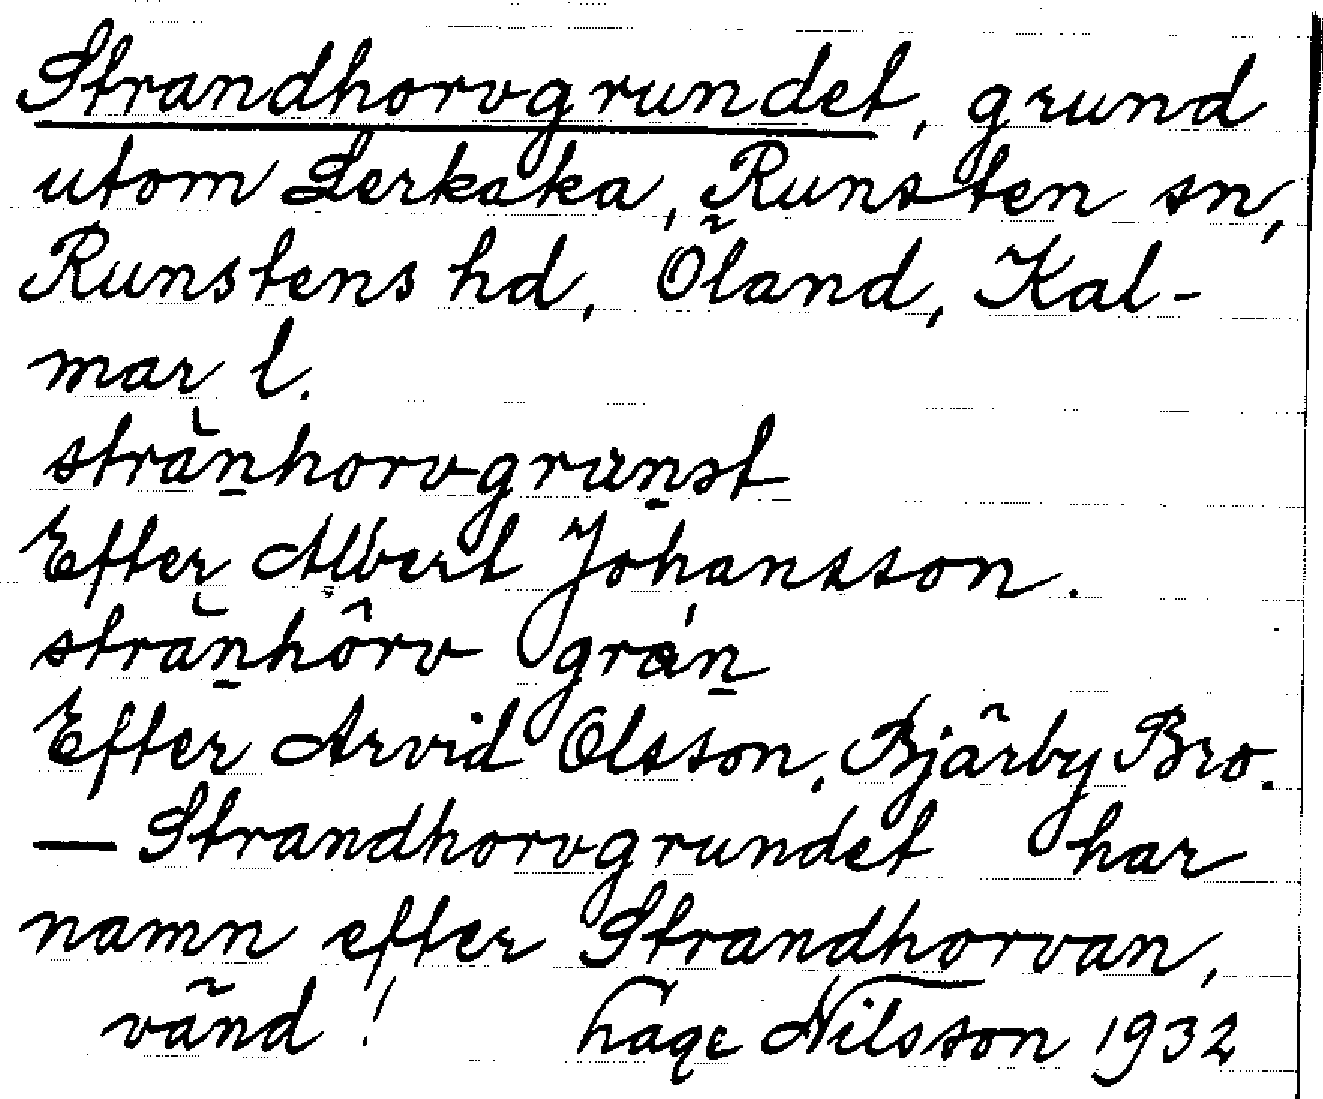 Strandhorvgrundet, grund
utom Lerkaka, Runsten sn,
Runstens hd, Öland, Kal-
mar l.
strạ̈nhorvgrunst
Efter Albert Johansson.
stränhôrv grán
Efter Arvid Olsson, Bjärby Bro.
— Strandhorvgrundet har
namn efter Strandhorvan,
vänd! Hage Nilsson 1932